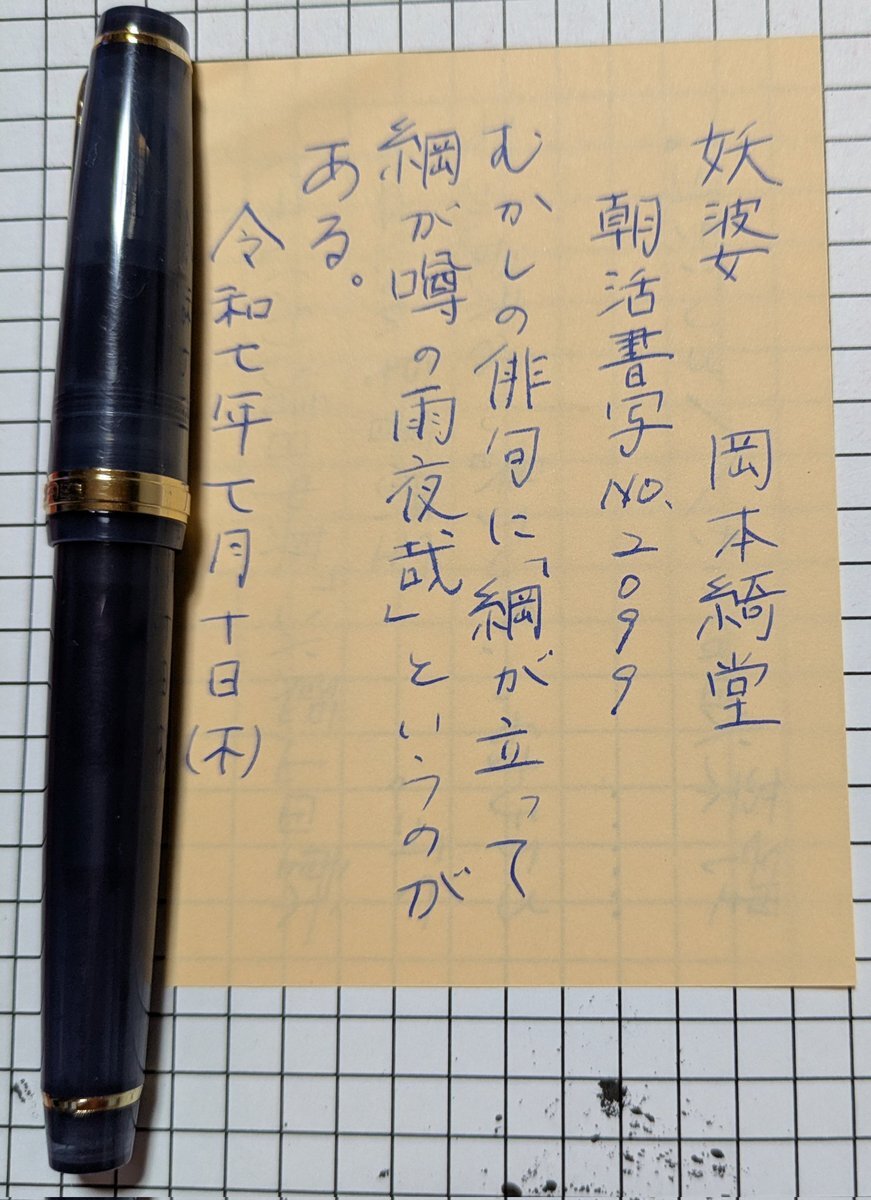 妖婆 岡本綺堂
朝活書写No.2099
むかしの俳句に「綱が立って
綱が噂の雨夜哉」というのが
ある。
令和七年七月十日(木)